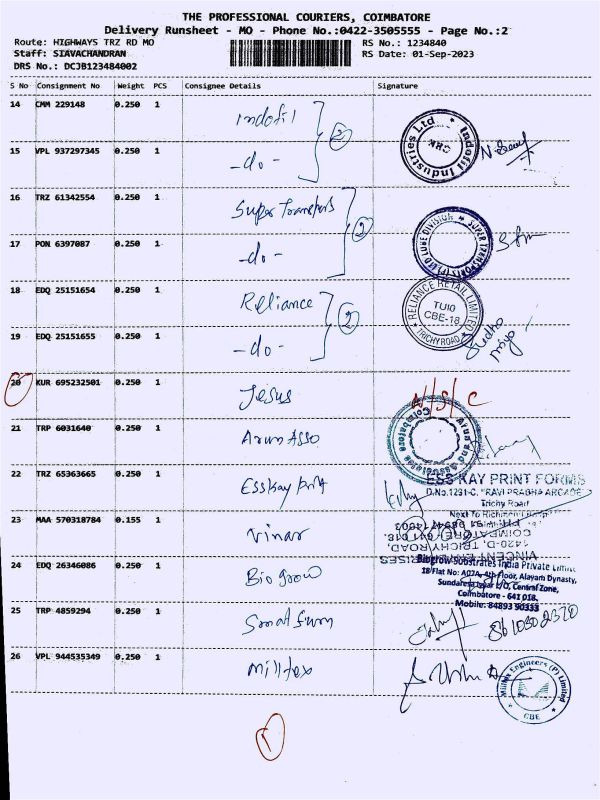 THE PROFESSIONAL COURIERS, COIMBATORE
Delivery Runsheet - MO - Phone No.:0422-3505555 - Page No.:2
Route: HIGHWAYS TRZ RD MO RS No.: 1234840
Staff: SIAVACHANDRAN RS Date: 01-Sep-2023
DRS No.: DCJB123484002
S No Consignment No Weight PCS Consignee Details Signature
14 CMM 229148 0.250 1 Indofil 2
Indofil Industries Ltd CBK
15 VPL 937297345 0.250 1 -do-
16 TRZ 61342554 0.250 1 Super Transports 2
SUPER TRANSPORTS (P) LTD LUBE DIVISION
17 PON 6397087 0.250 1 -do-
18 EDQ 25151654 0.250 1 Reliance 2
RELIANCE RETAIL LIMITED
TUI0
CBE-18
TRICHY ROAD
19 EDQ 25151655 0.250 1 -do-
Sudha
Priya
20 KUR 695232501 0.250 1 Jesus N/S/C
21 TRP 6031640 0.250 1 Arun Asso
Arun and Associates Coimbatore
22 TRZ 65363665 0.250 1 Esskay print
ESS KAY PRINT FORMS
D.No.1231-C, "RAVI PRABHA ARCADE"
Trichy Road
23 MAA 570318784 0.155 1 Vinar
VINCENT ENTERPRISES
1420-D, TRICHY ROAD,
COIMBATORE - 641 018.
24 EDQ 26346086 0.250 1 Bio grow
Biogrow Substrates India Private Limited
18/Flat No: A07A, 4th Floor, Alayam Dynasty,
Sundaresa Iyar L/O, Central Zone,
Coimbatore - 641 018.
Mobile: 84893 90333
25 TRP 4859294 0.250 1 Smat furn
26 VPL 944535349 0.250 1 Milltex
Milltex Engineers (P) Limited
CBE
1